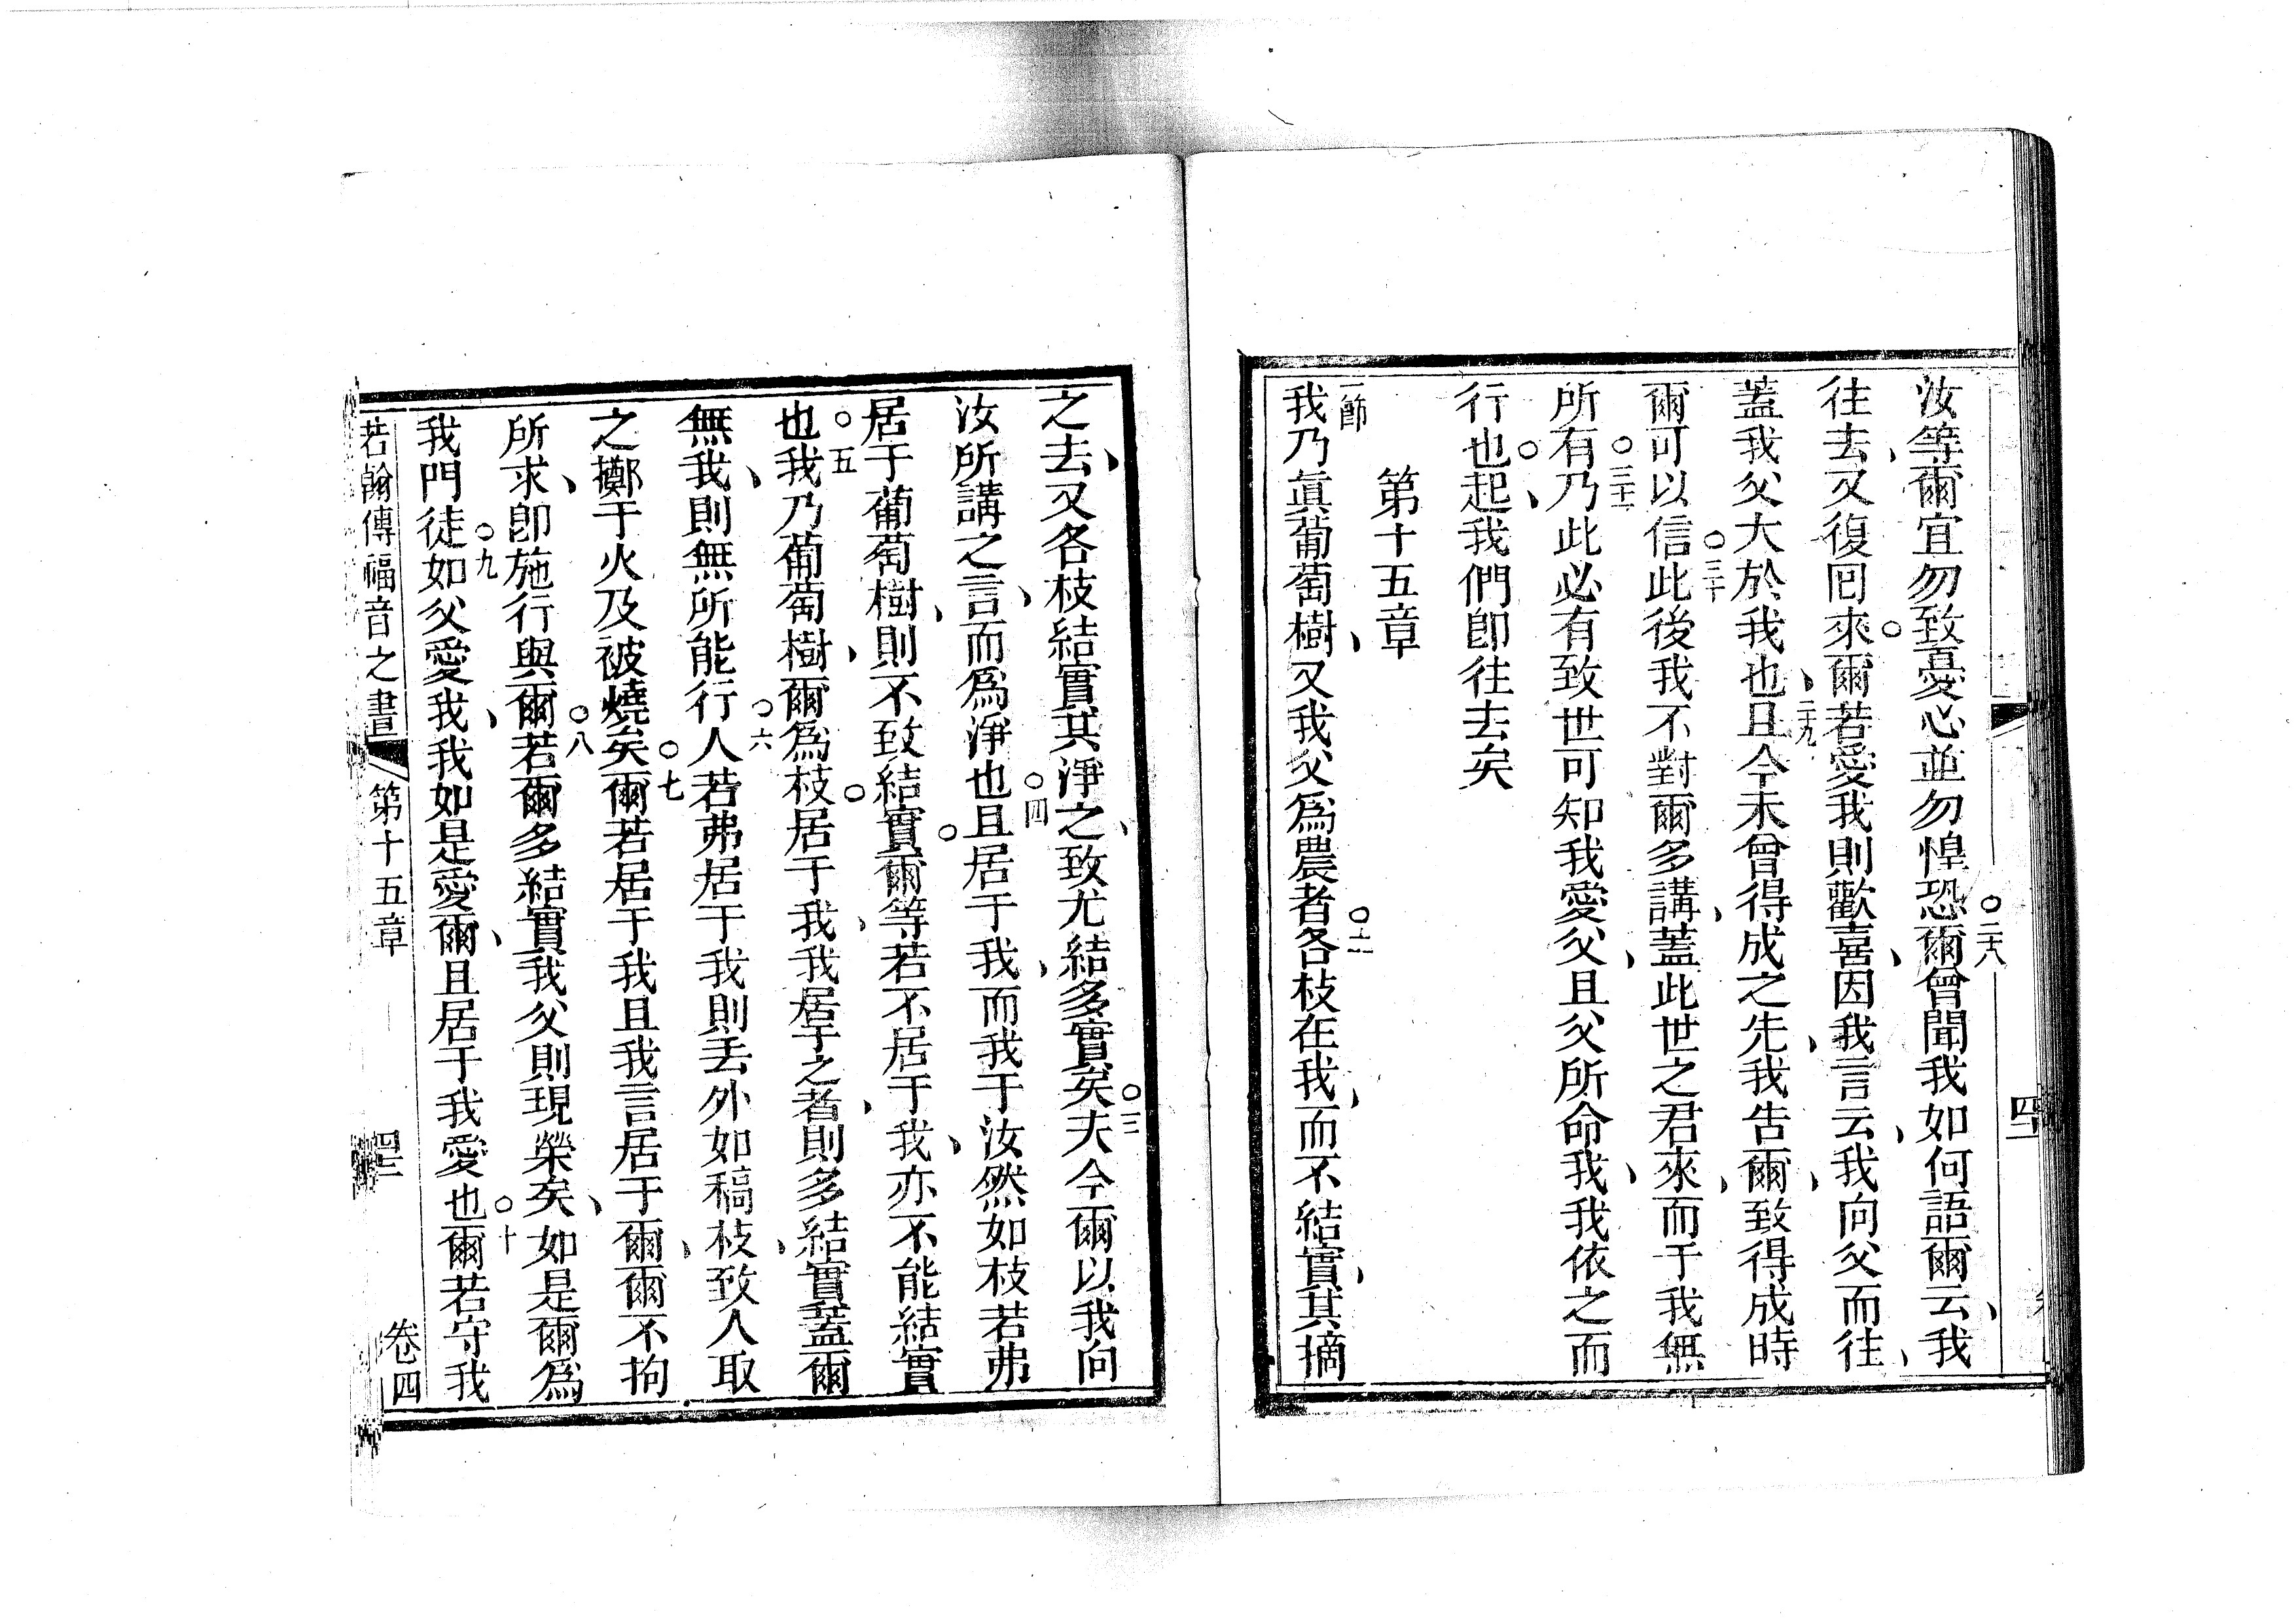 汝等爾宜勿致憂心並勿惶恐○二十八爾曾聞我如何語爾云、我
往去、又復囘來○爾若愛我則歡喜、因我言云、我向父而往、
蓋我父大於我也、二十九且今未曾得成之先、我告爾、致得成時
爾可以信○三十此後我不對爾多講、蓋此世之君來、而于我無
所有○三十一乃此必有致世可知我愛父、且父所命我、我依之而
行也○起、我們卽往去矣
第十五章
一節我乃眞葡萄樹、又我父爲農者○二各枝在我、而不結實、其摘
四十二
之去、又各枝結實其淨之、致尤結多實矣○三夫今爾以我向
汝所講之言、而爲淨也○四且居于我、而我于汝然如枝若弗
居于葡萄樹、則不致結實○爾等若不居于我、亦不能結實
也○五我乃葡萄樹、爾爲枝○居于我、我居于之者、則多結實蓋爾
無我、則無所能行○六人若弗居于我則丢外如稿枝、致人取
之擲于火及被燒矣○七爾若居于我且我言居于爾、爾不拘
所求、卽施行與爾○八若爾多結實我父則現榮矣、如是爾爲
我門徒○九如父愛我、我如是愛爾、且居于我愛也○十爾若守我
若翰傳福音之書 第十五章 卷四